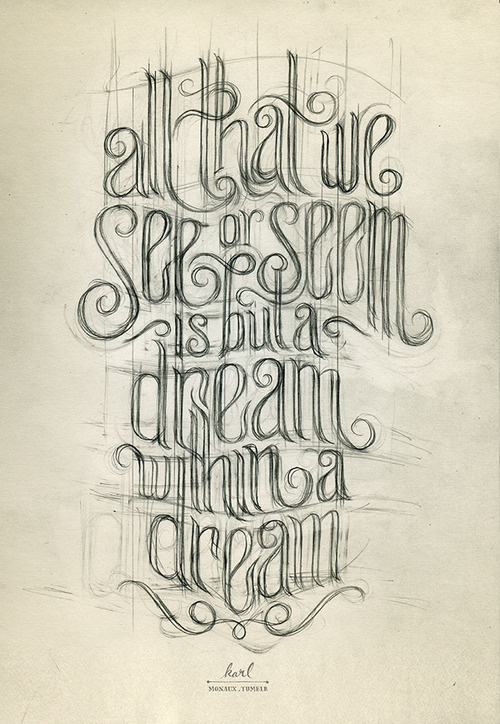 all that we
see or seem
is but a
dream
within a
dream
karl
MONAUX.TUMBLR